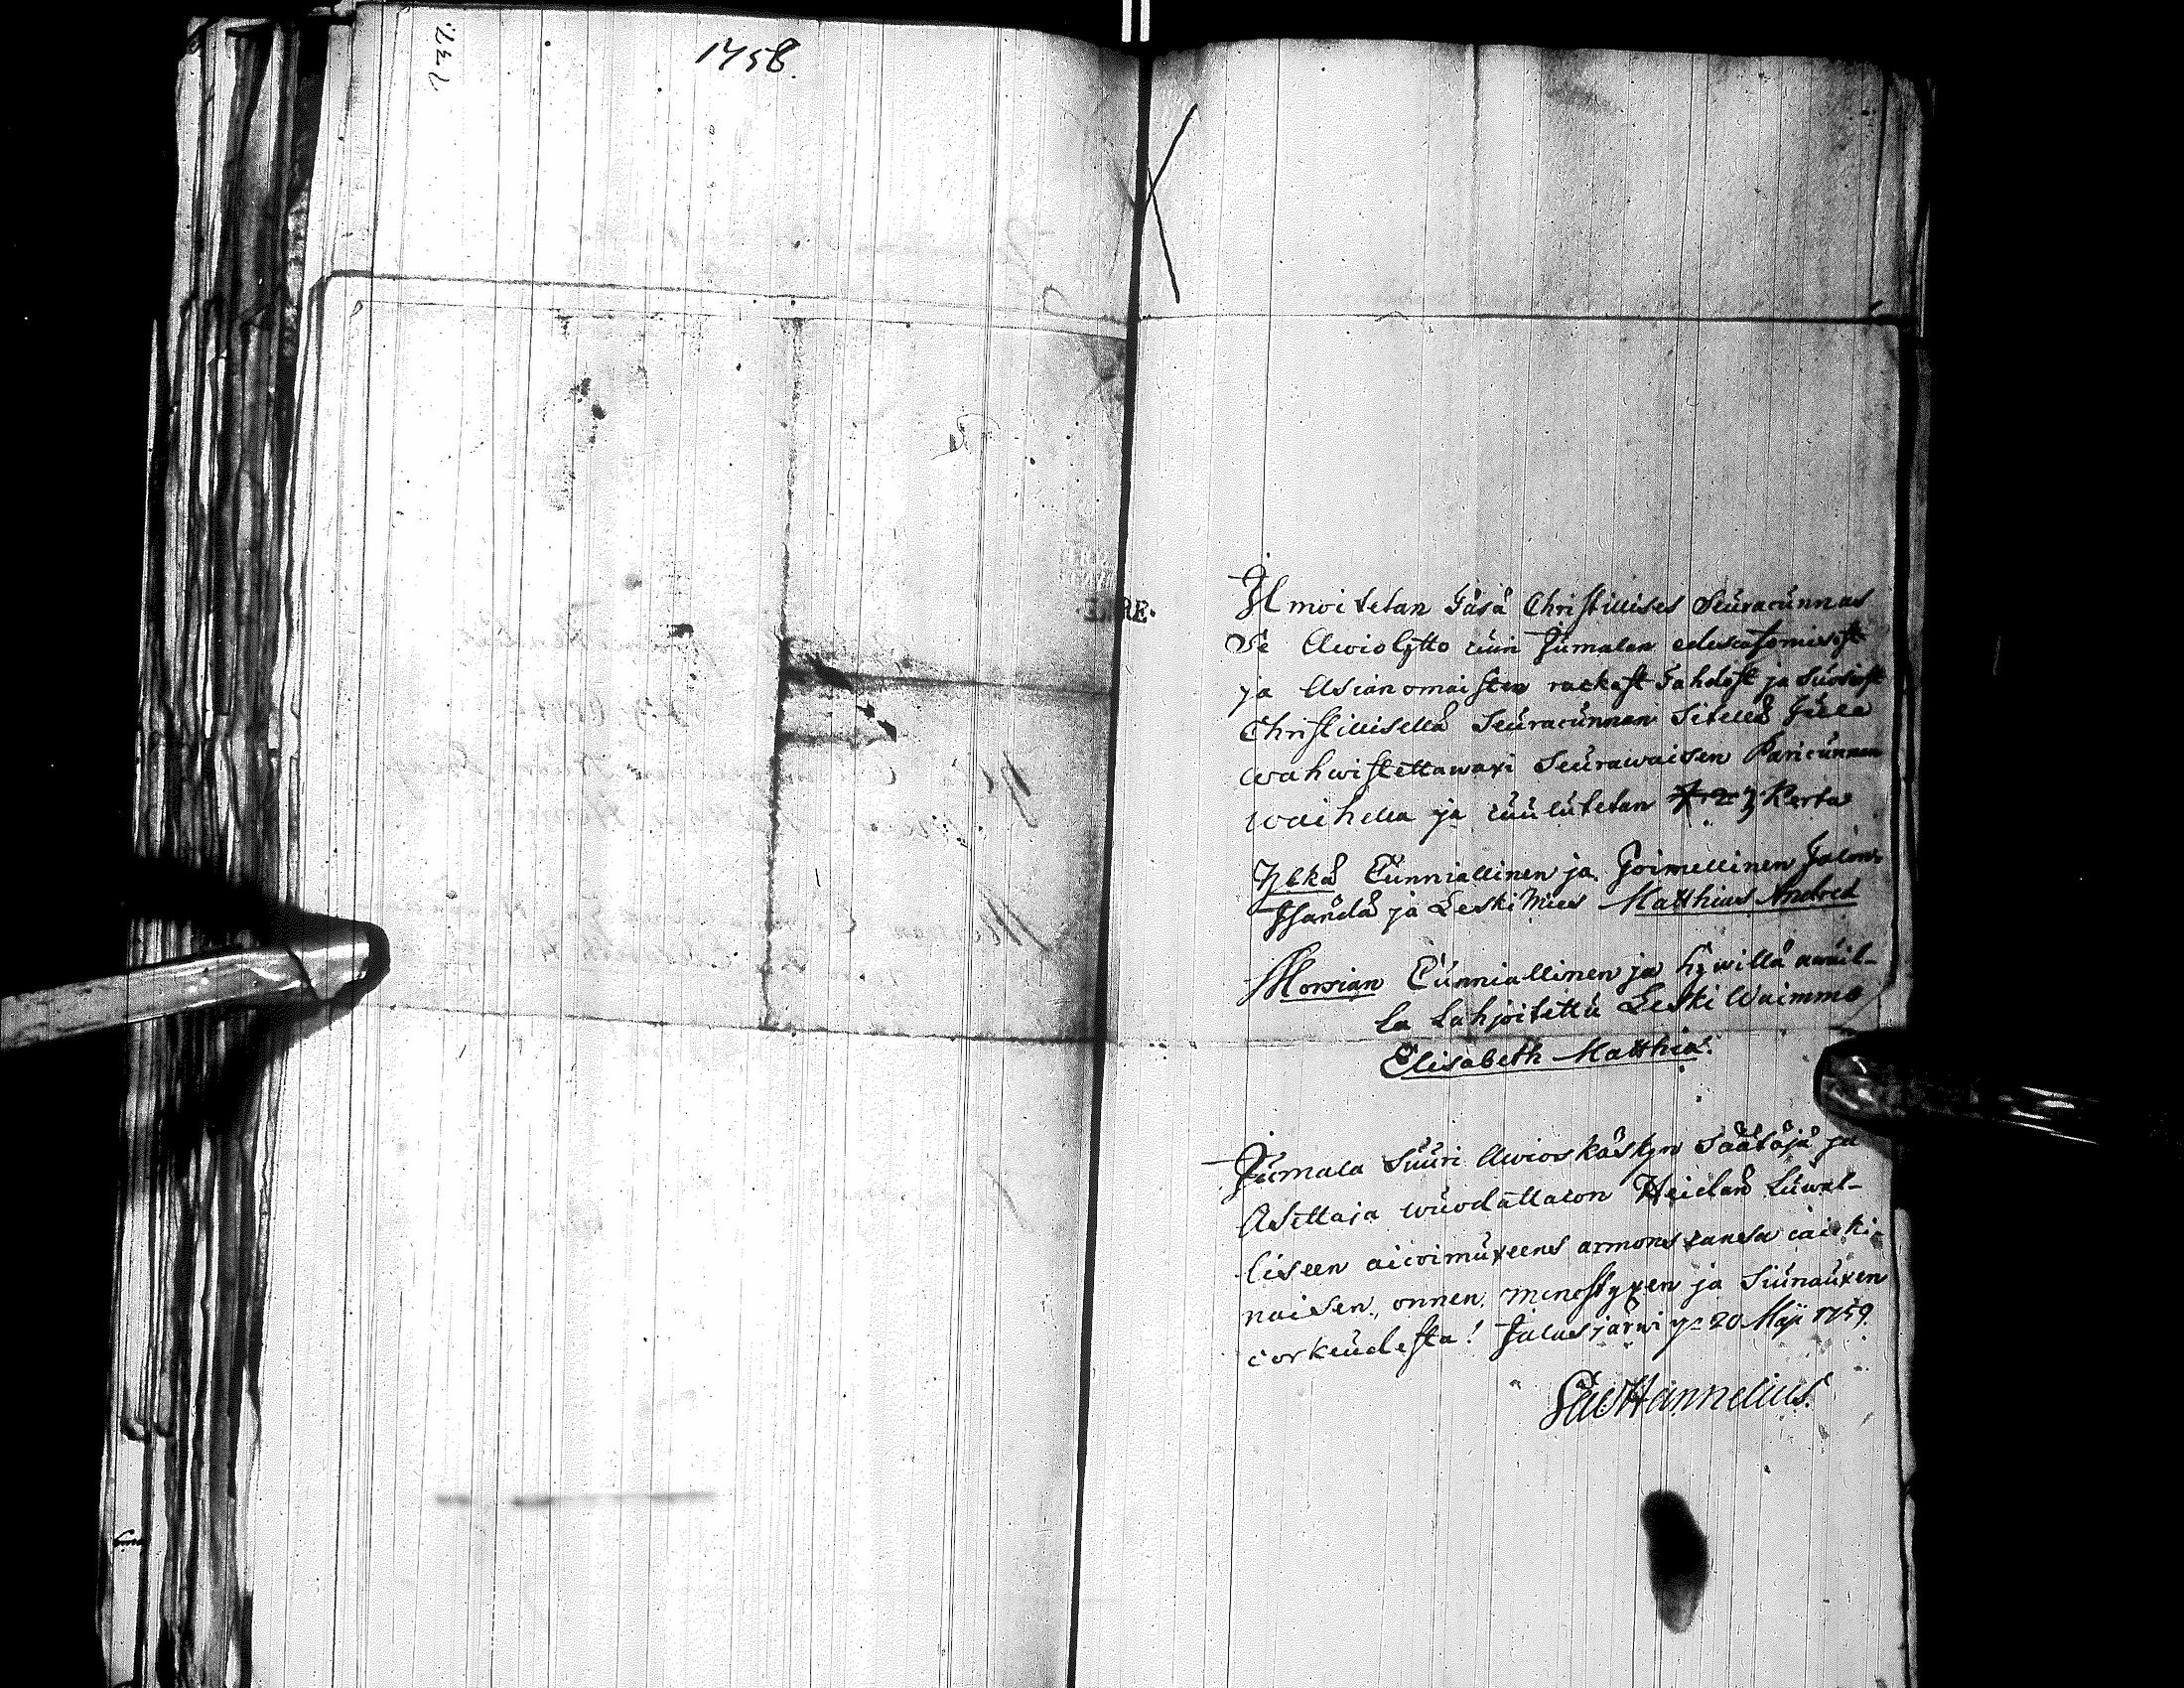 1758.
737.
Ilmoitetan Täsä Christillises Seüracünnas
Se Awiokätto cüin Jümalan edescatzomisest
ja Asianomaisten rackast Tahdost ja Süosiost
Christilliseldä Seüracünnan Siteellä Tülee
wahwistettawaxi Seürawaisen Paricünnan
waihella ja cüülütetan 3 Kerta
Yljkä Cünniallinen ja Toimellinen Talon
Isändä ja Leski Mies Matthias Andred
Morsian Cünniallinen ja hywillä awüil-
la Lahjoitettü Leski Waimmo
Elisabeth Matthiæ.
Jümala Süüri Awios käskyn Säätäjä ja
Asettaja wüodattacon Heidän Lüwal-
liseen aicoimüxeens armons canssa caicki-
naisen onnen, menestyxen ja Siünaüxen
corkeüdesta! Jalasjärwi ye 20 Maji 1759.
Hannelius.